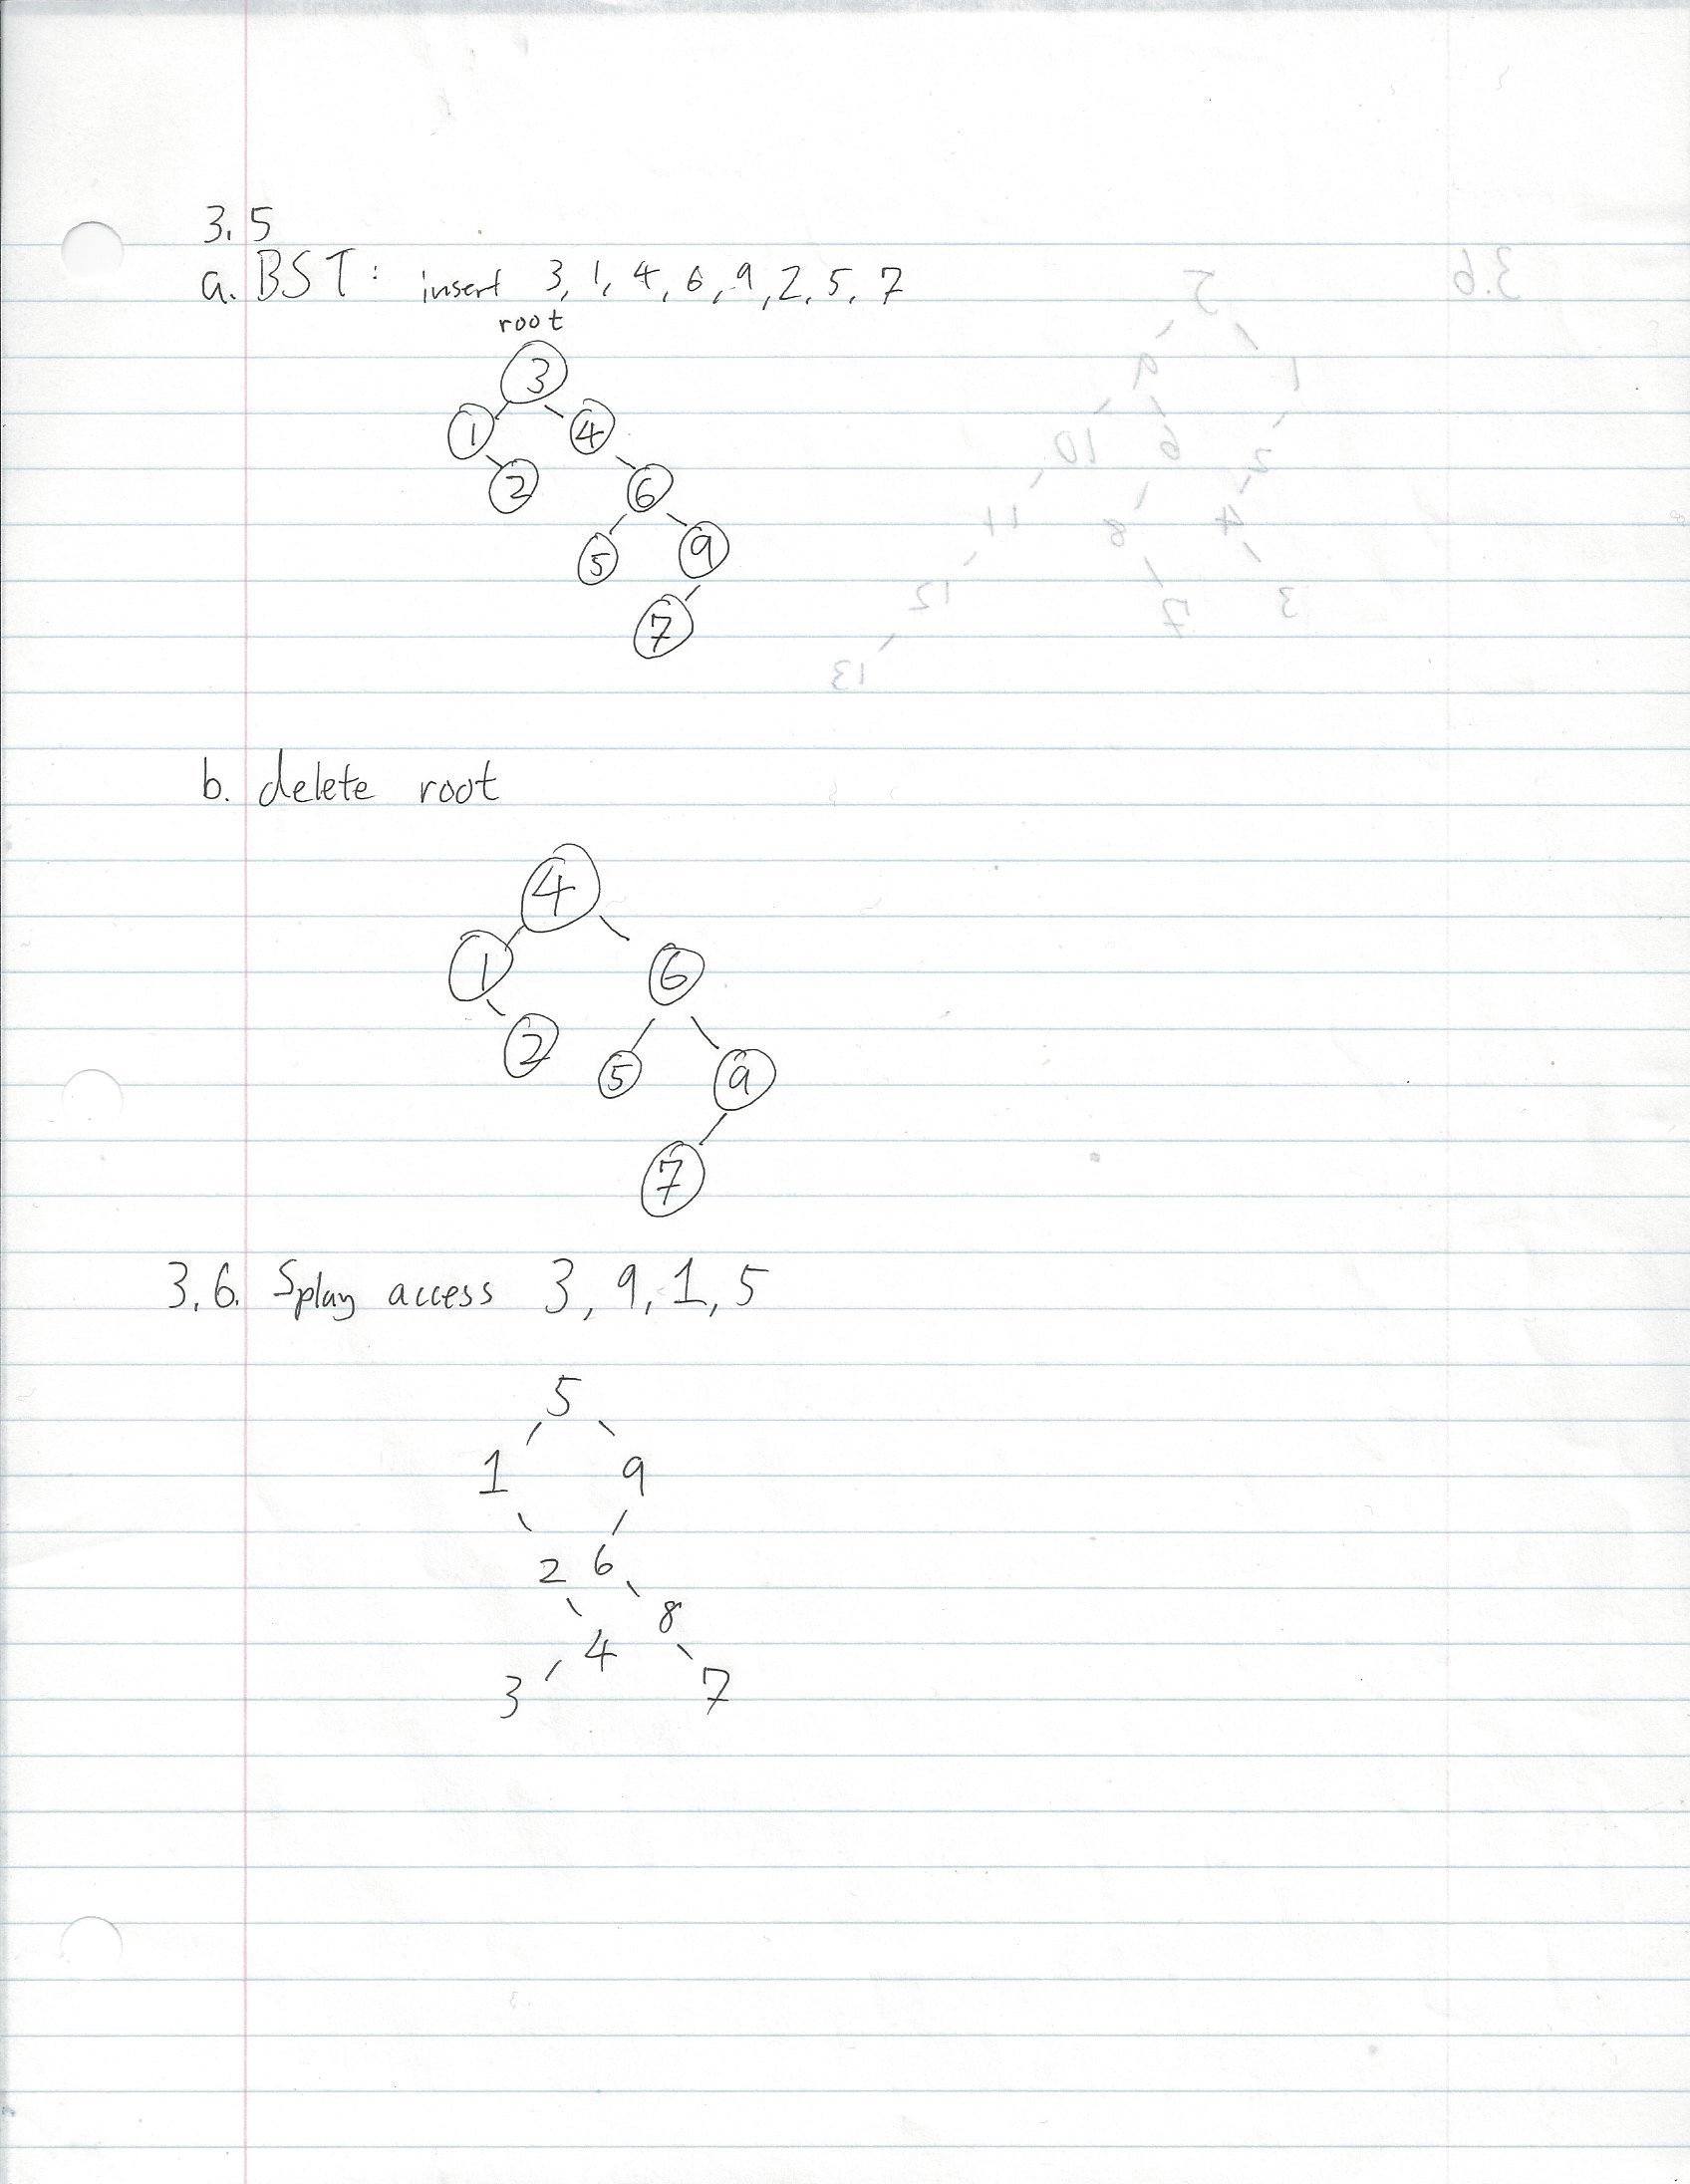 3.5
a. BST: insert 3, 1, 4, 6, 9, 2, 5, 7
root
3
1 4
2 6
5 9
7
b. delete root
4
1 6
2 5 9
7
3.6. Splay access 3, 9, 1, 5
5
1 9
2 6
8
4
3 7
3.6
5
9 1
10 6 2
11 8 4
12 7 3
13